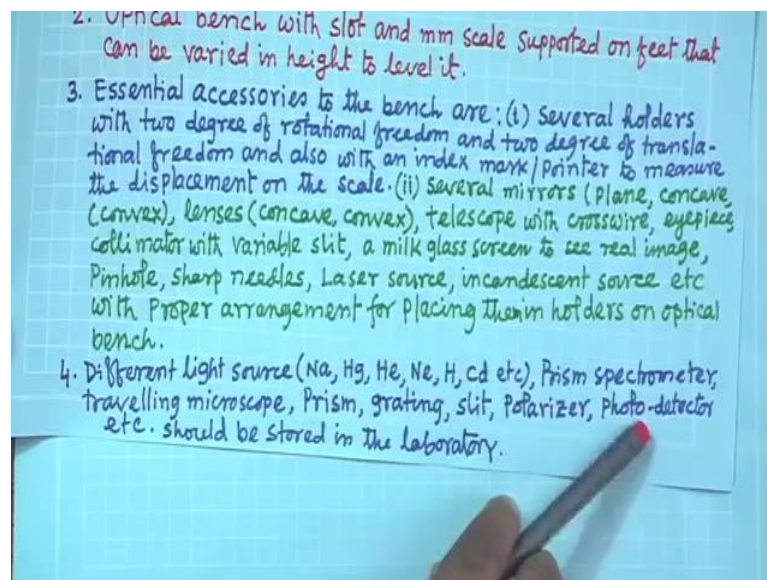 2. Optical bench with slot and mm scale supported on feet that
can be varied in height to level it.
3. Essential accessories to the bench are: (i) Several holders
with two degree of rotational freedom and two degree of transla-
tional freedom and also with an index mark/pointer to measure
the displacement on the scale. (ii) Several mirrors (Plane, concave,
(convex), lenses (concave, convex), telescope with crosswire, eyepiece,
collimator with variable slit, a milk glass screen to see real image,
Pinhole, sharp needles, Laser source, incandescent source etc
with Proper arrangement for placing them in holders on optical
bench.
4. Different light source (Na, Hg, He, Ne, H, Cd etc), Prism spectrometer,
travelling microscope, Prism, grating, slit, Polarizer, Photo-detector
etc. should be stored in the laboratory.